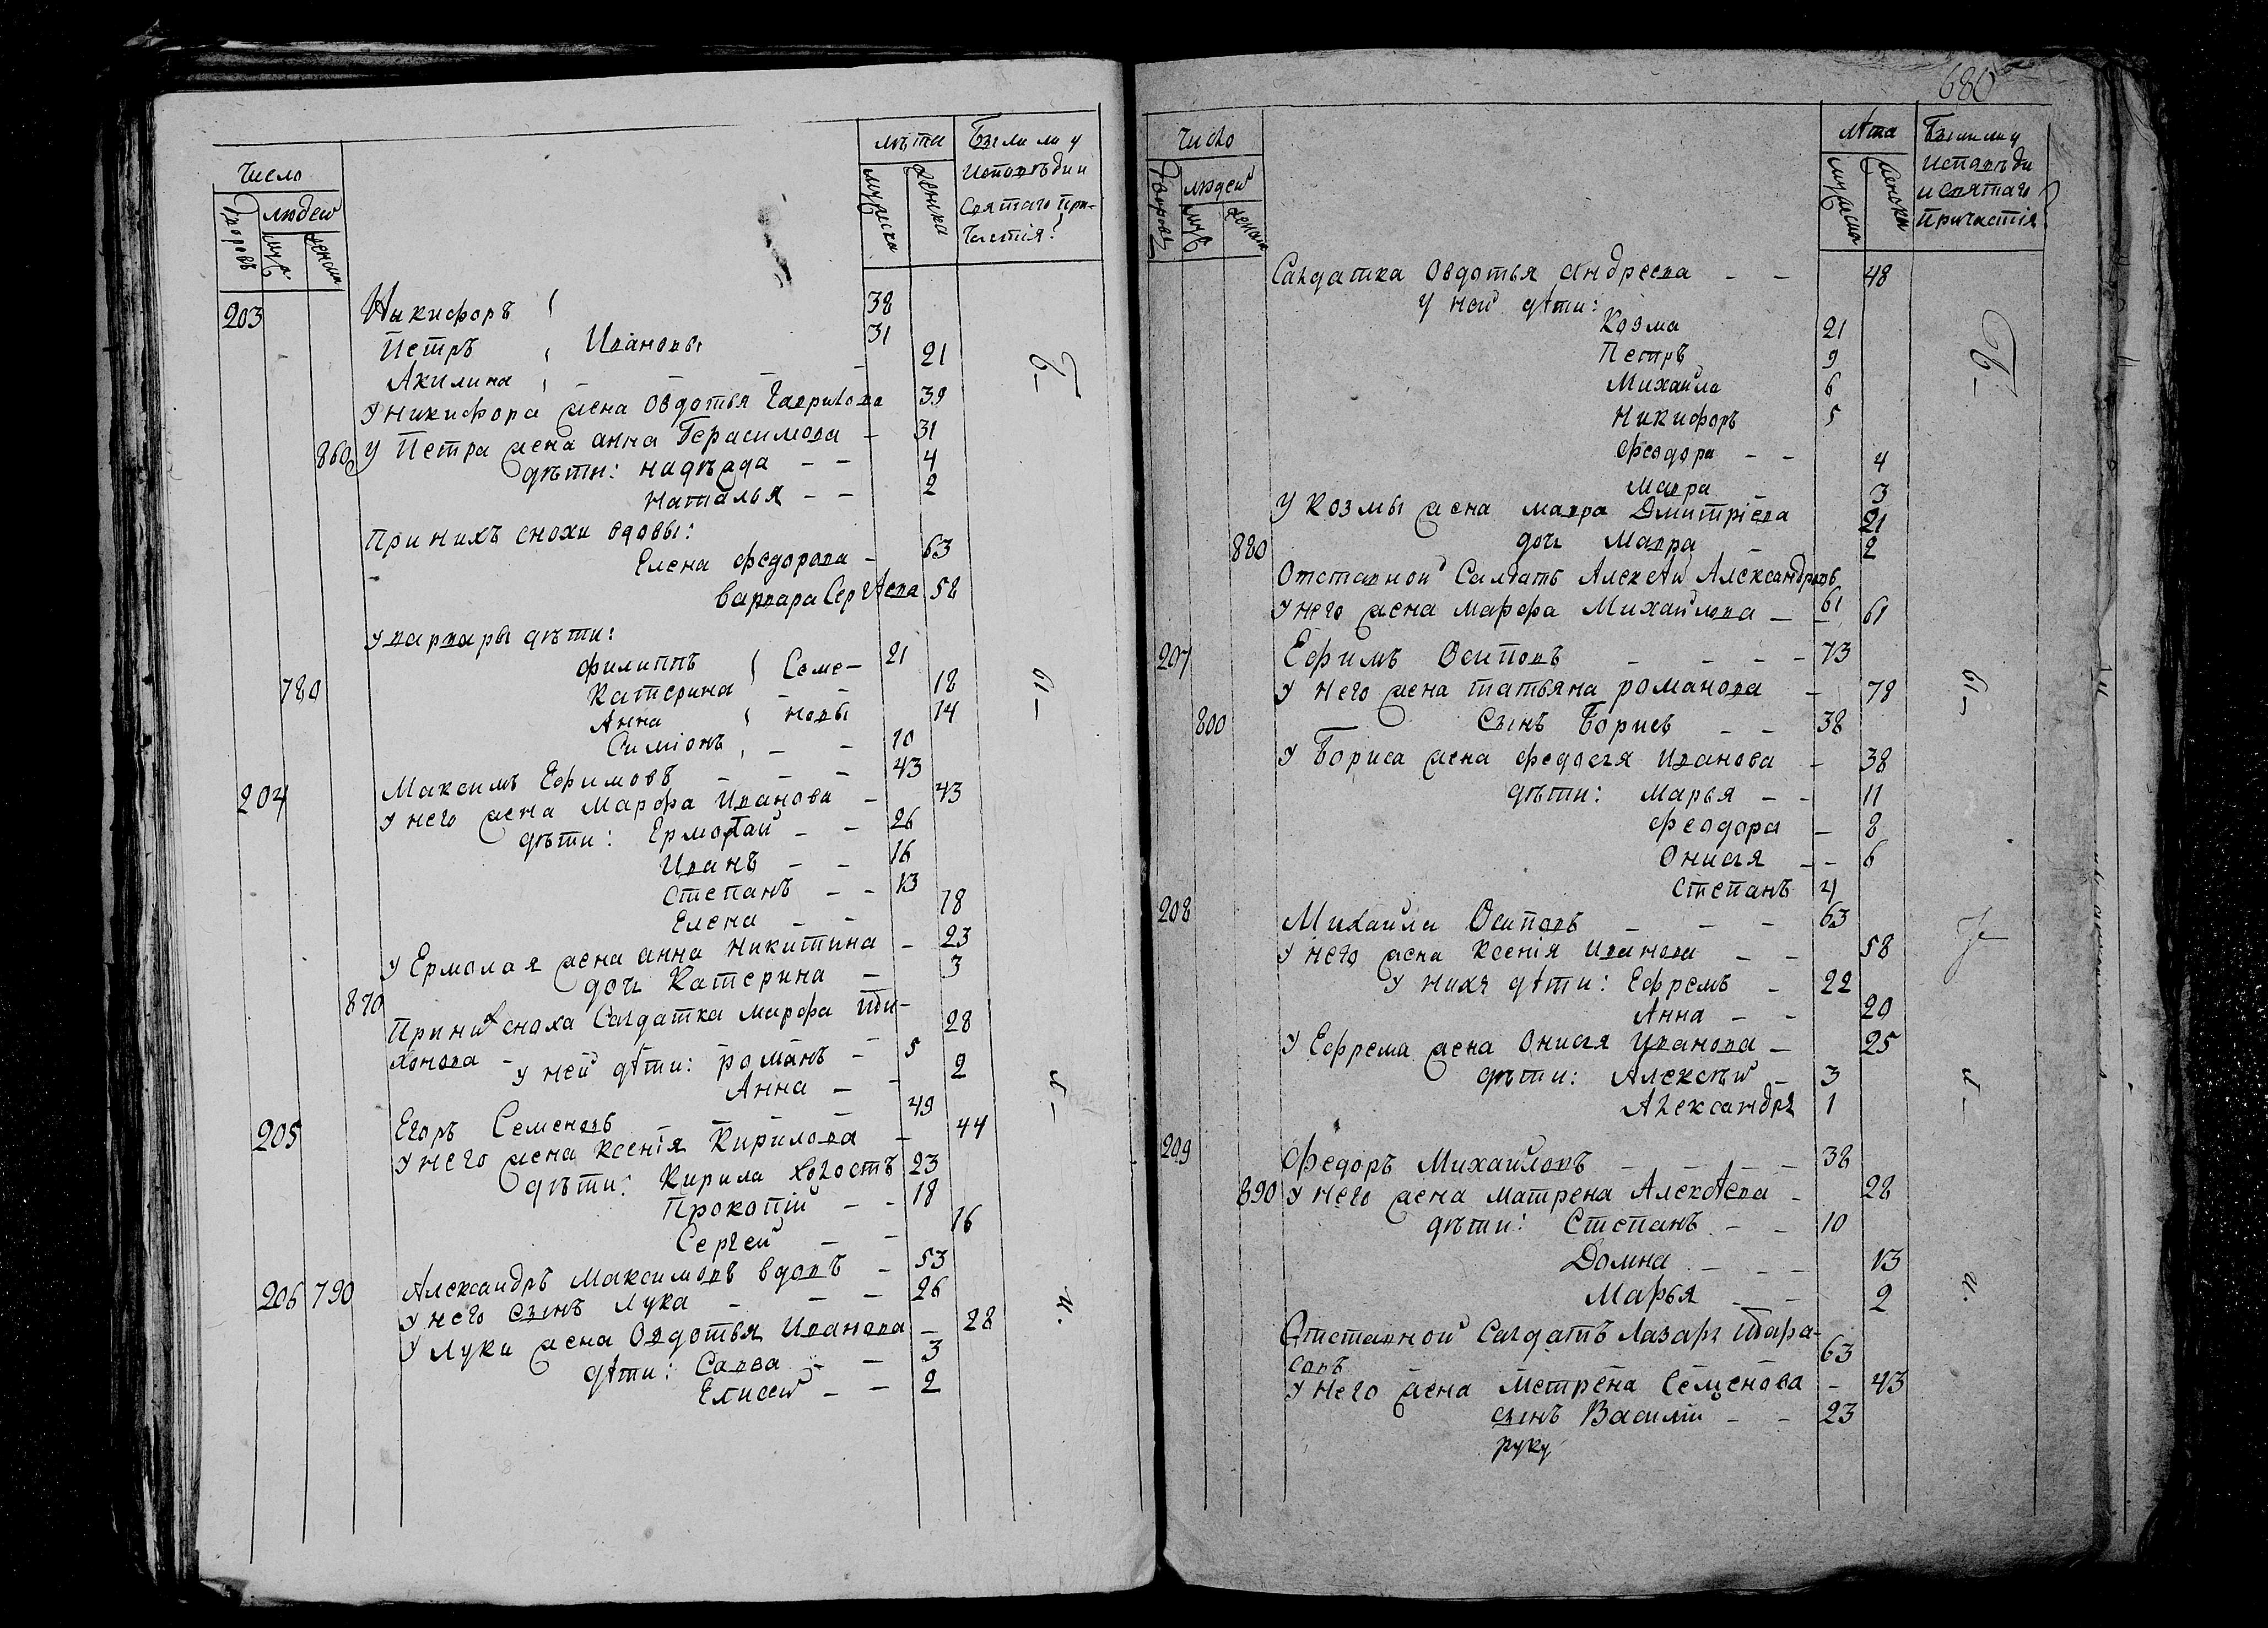 Число
Дворовъ
людей
муж.
женск.
лѣта
мужеска
женска
Были ли у
исповѣди и
святаго При-
частія?
203 Никифоръ 38
Петръ Ивановы 31
Акилина 21
У Никифора жена Овдотья Гаврилова 39
860 У Петра жена анна Герасимова 31
дѣти: надѣжда 4
наталья 2
При нихъ снохи вдовы:
Елена федорова 63
варвара Сергѣева 58
У варвары дѣти:
филиппъ Семе- 21
780 Катерина 18
Анна новы 14
Симіонъ 10
204 Максимъ Ефимовъ 43
У него жена Марфа Иванова 43
дѣти: Ермолай 26
Иванъ 16
Степанъ 13
Елена 18
У Ермолая жена анна никитина 23
дочь Катерина 3
870 При них сноха Салдатка марфа ти- 28
хонова - У ней дѣти: романъ 5
Анна 2
205 Егоръ Семеновъ 49
У него жена ксенія Кирилова 44
дѣти: Кирила холостъ 23
Прокопій 18
Сергей 16
206 790 Александръ Максимовъ вдовъ 53
У него сынъ лука 26
У луки жена Овдотья Иванова 28
дѣти: Савва 3
Елисей 2
- б -
- ы -
- л -
и.
680
Число
Дворовъ
людей
муж
женск
лѣта
мужеска
женска
Были ли у
исповѣди
и святаго
Причастія?
Салдатка Овдотья андреева 48
У ней дѣти:
Козма 21
Петръ 9
Михайла 6
Никифоръ 5
феодора 4
Мавра 3
У козмы жена мавра Дмитріева 21
880 дочь Мавра 2
Отставной Салдатъ Алексѣй Александровъ 61
У него жена марфа Михайлова 61
207 Ефимъ Осиповъ 73
У него жена татьяна романова 78
800 Сынъ Борисъ 38
У Бориса жена федосья Иванова 38
дѣти: Марья 11
феодора 8
Онисья 6
Степанъ 4
208 Михайла Осиповъ 63
У него жена ксенія Иванова 58
У нихъ дѣти: Ефремъ 22
Анна 20
У Ефрема жена Онисья Иванова 25
дѣти: Алексѣй 3
Александръ 1
209 федоръ Михайловъ 38
890 У него жена матрена Алексѣева 28
дѣти: Степанъ 10
Домна 13
Марья 2
Отставной Салдатъ Лазарь Тара-
совъ 63
У него жена Метрена Семенова 43
сынъ Василій 23
руку
- б -
- ы -
- л -
и.